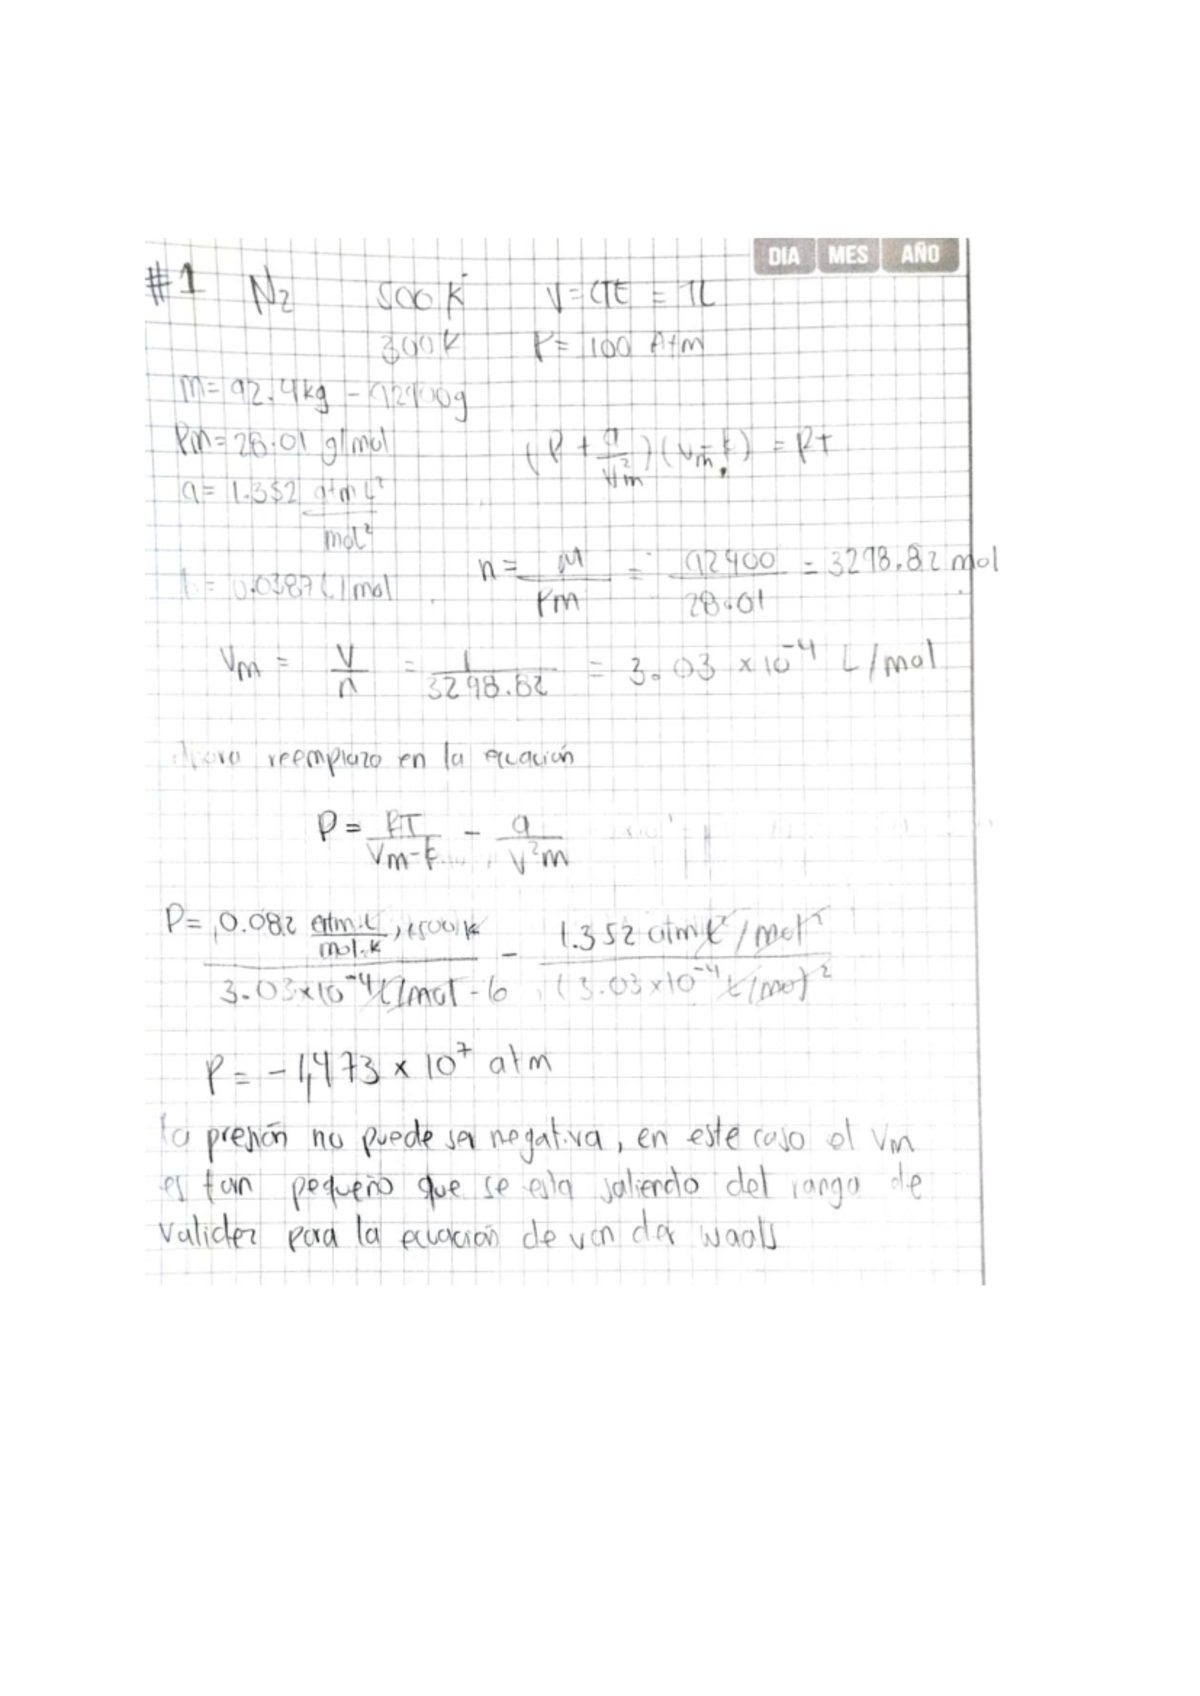 DIA MES AÑO
#1 N₂ 500 K V = CTE = 1L
300 K P = 100 Atm
m = 92.4 kg - 92400g
Pm = 28.01 g/mol
(P + a/Vm²)(Vm - b) = RT
a = 1.352 atm L²/mol²
b = 0.0387 L/mol
n = M/Pm = 92400/28.01 = 3298.82 mol
Vm = V/n = 1/3298.82 = 3.03 x10⁻⁴ L/mol
Ahora reemplazo en la ecuación
P = RT/(Vm-b) - a/V²m
P = 0.082 atm.L/mol.K , (500)K / 3.03x10⁻⁴ L/mol - b - 1.352 atm L²/mol² / (3.03x10⁻⁴ L/mol)²
P = -1,473 x 10⁷ atm
la presión no puede ser negativa, en este caso el Vm
es tan pequeño que se esta saliendo del rango de
validez para la ecuación de van der waals